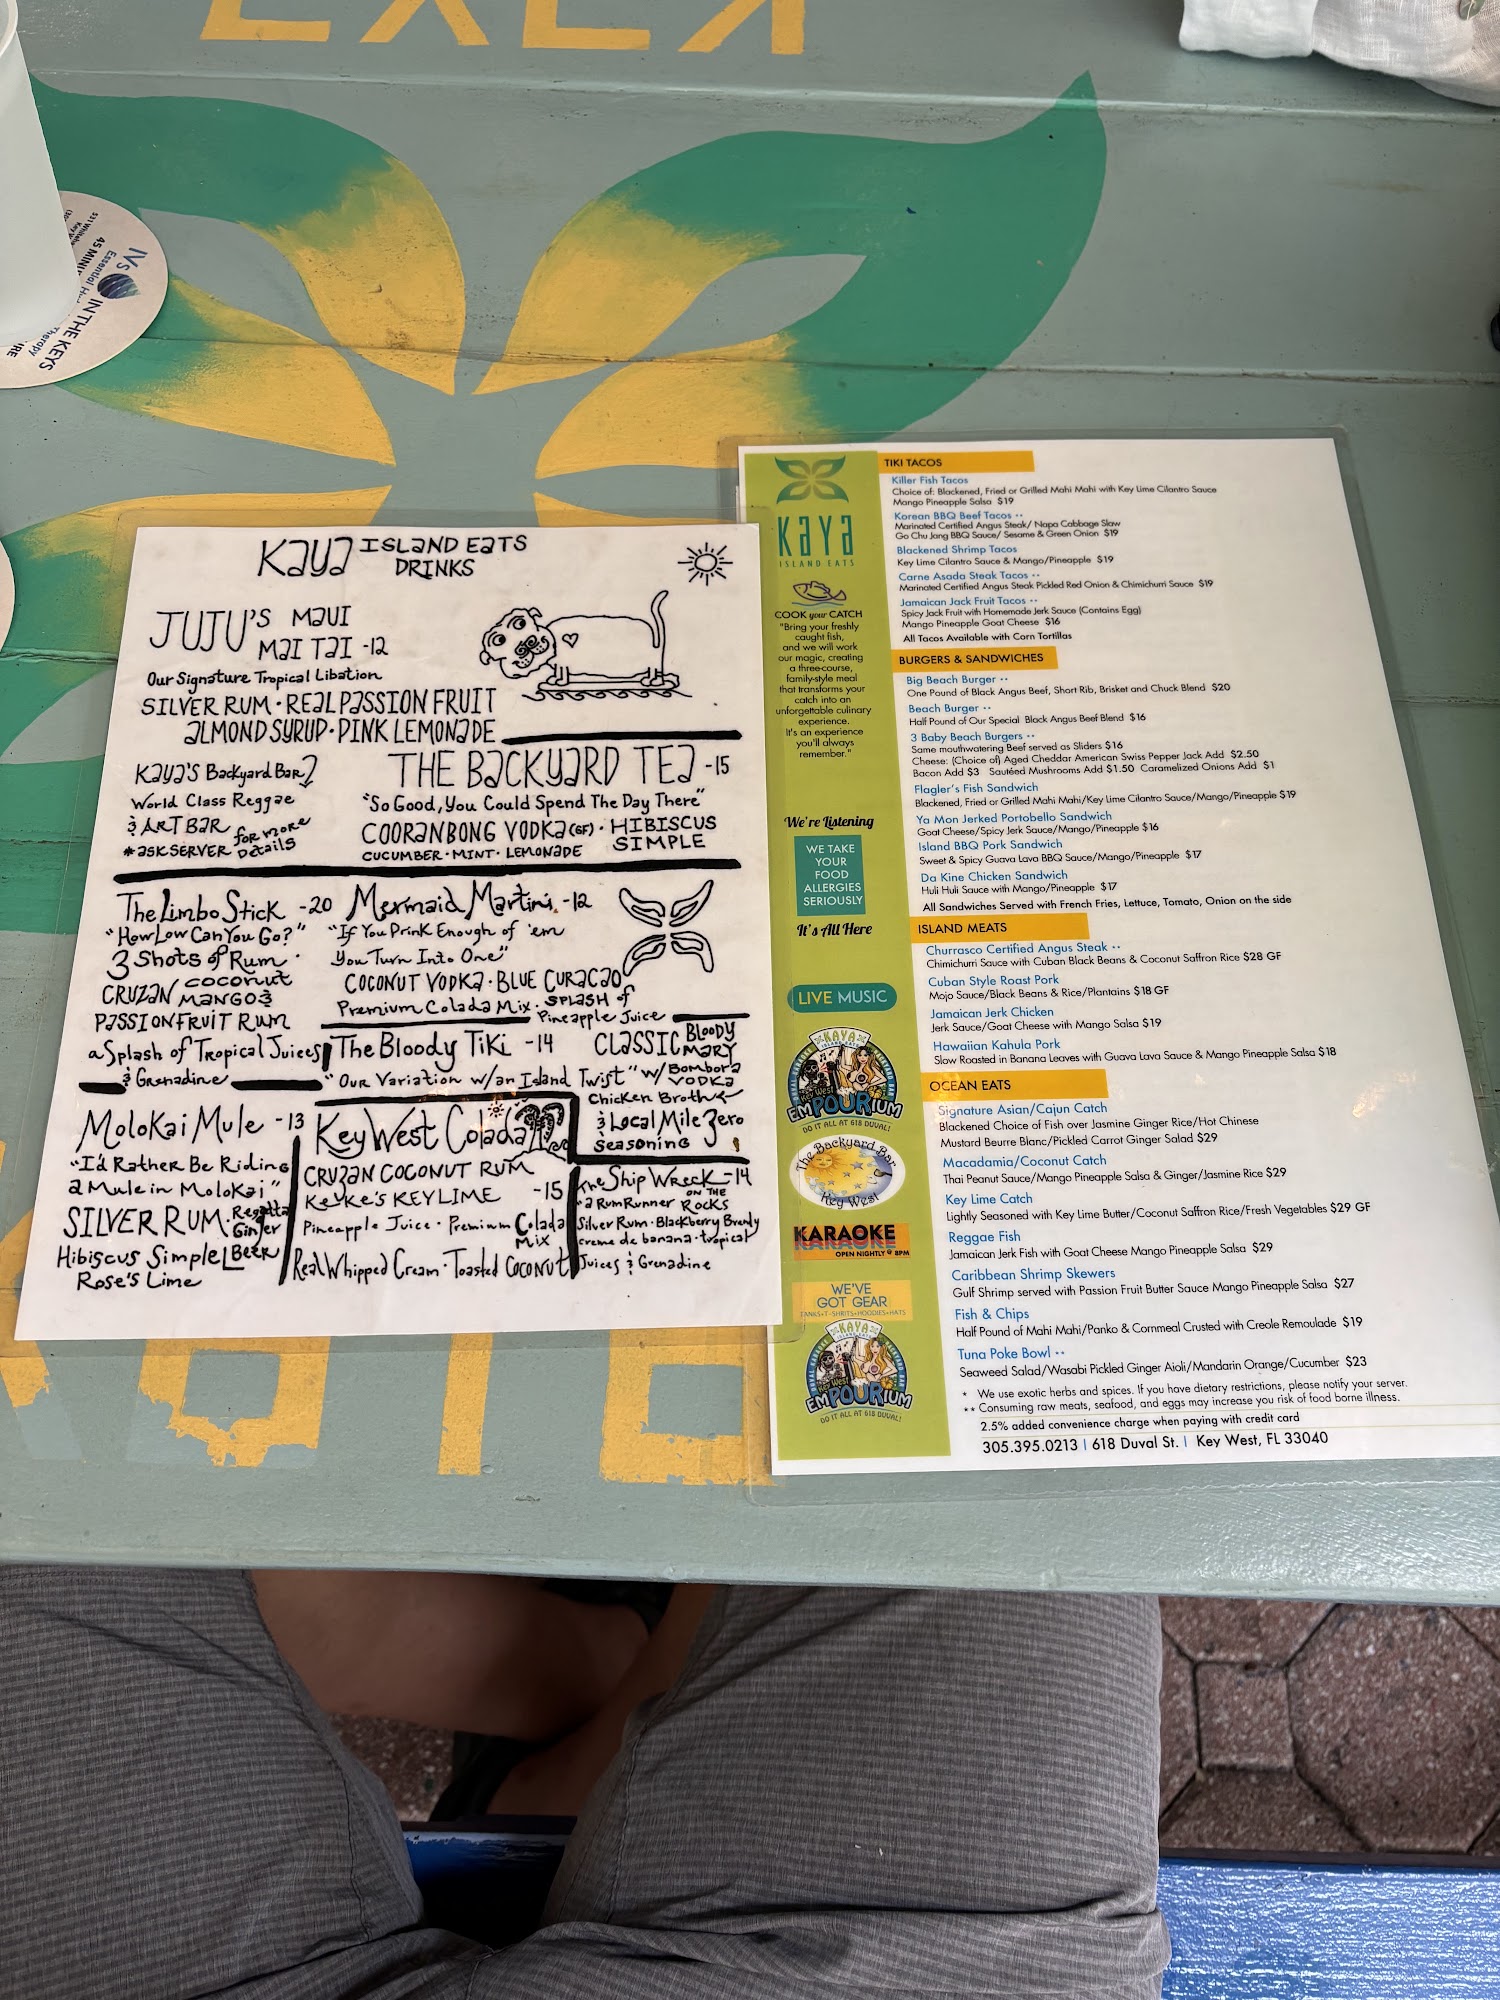 KAYA ISLAND EATS
DRINKS
JUJU'S MAUI
MAI TAI -12
Our Signature Tropical Libation
SILVER RUM · REAL PASSION FRUIT
ALMOND SYRUP · PINK LEMONADE
KAYA'S Backyard Bar
World Class Reggae
& ART BAR
*ASK SERVER for more Details
THE BACKYARD TEA -15
"So Good, You Could Spend The Day There"
COORANBONG VODKA (GF) · HIBISCUS
SIMPLE
CUCUMBER · MINT · LEMONADE
The Limbo Stick -20
"How Low Can You Go?"
3 Shots of Rum ·
CRUZAN COCONUT
MANGO &
PASSIONFRUIT RUM
a Splash of Tropical Juices
& Grenadine
Mermaid Martini -12
"If You Drink Enough of 'em
You Turn Into One"
COCONUT VODKA · BLUE CURACAO
Premium Colada Mix · SPLASH of
Pineapple Juice
The Bloody Tiki -14
"Our Variation w/an Island Twist"
CLASSIC BLOODY
MARY
w/ Bombora
VODKA
Chicken Broth
& Local Mile Zero
Seasoning
MoloKai Mule -13
"I'd Rather Be Riding
a Mule in MoloKai"
SILVER RUM · Regatta
Ginger
Beer
Hibiscus Simple
Rose's Lime
Key West Colada
CRUZAN COCONUT RUM
KeKe'S KEYLIME -15
Pineapple Juice · Premium Colada
Mix
Real Whipped Cream · Toasted COCONUT
The Ship Wreck -14
a RumRunner ON THE ROCKS
Silver Rum · Blackberry Brandy
creme de banana · tropical
Juices & Grenadine
KAYA
ISLAND EATS
COOK your CATCH
"Bring your freshly
caught fish,
and we will work
our magic, creating
a three-course,
family-style meal
that transforms your
catch into an
unforgettable culinary
experience.
It's an experience
you'll always
remember."
We're Listening
WE TAKE
YOUR
FOOD
ALLERGIES
SERIOUSLY
It's All Here
LIVE MUSIC
KAYA
ISLAND EATS
Key West
EMPOURIUM
DO IT ALL AT 618 DUVAL!
The Backyard Bar
Key West
KARAOKE
OPEN NIGHTLY @ 8PM
WE'VE
GOT GEAR
TANKS•T-SHRITS•HOODIES•HATS
KAYA
ISLAND EATS
Key West
EMPOURIUM
DO IT ALL AT 618 DUVAL!
TIKI TACOS
Killer Fish Tacos
Choice of: Blackened, Fried or Grilled Mahi Mahi with Key Lime Cilantro Sauce
Mango Pineapple Salsa $19
Korean BBQ Beef Tacos **
Marinated Certified Angus Steak/ Napa Cabbage Slaw
Go Chu Jang BBQ Sauce/ Sesame & Green Onion $19
Blackened Shrimp Tacos
Key Lime Cilantro Sauce & Mango/Pineapple $19
Carne Asada Steak Tacos **
Marinated Certified Angus Steak Pickled Red Onion & Chimichurri Sauce $19
Jamaican Jack Fruit Tacos **
Spicy Jack Fruit with Homemade Jerk Sauce (Contains Egg)
Mango Pineapple Goat Cheese $16
All Tacos Available with Corn Tortillas
BURGERS & SANDWICHES
Big Beach Burger **
One Pound of Black Angus Beef, Short Rib, Brisket and Chuck Blend $20
Beach Burger **
Half Pound of Our Special Black Angus Beef Blend $16
3 Baby Beach Burgers **
Same mouthwatering Beef served as Sliders $16
Cheese: (Choice of) Aged Cheddar American Swiss Pepper Jack Add $2.50
Bacon Add $3 Sautéed Mushrooms Add $1.50 Caramelized Onions Add $1
Flagler's Fish Sandwich
Blackened, Fried or Grilled Mahi Mahi/Key Lime Cilantro Sauce/Mango/Pineapple $19
Ya Mon Jerked Portobello Sandwich
Goat Cheese/Spicy Jerk Sauce/Mango/Pineapple $16
Island BBQ Pork Sandwich
Sweet & Spicy Guava Lava BBQ Sauce/Mango/Pineapple $17
Da Kine Chicken Sandwich
Huli Huli Sauce with Mango/Pineapple $17
All Sandwiches Served with French Fries, Lettuce, Tomato, Onion on the side
ISLAND MEATS
Churrasco Certified Angus Steak **
Chimichurri Sauce with Cuban Black Beans & Coconut Saffron Rice $28 GF
Cuban Style Roast Pork
Mojo Sauce/Black Beans & Rice/Plantains $18 GF
Jamaican Jerk Chicken
Jerk Sauce/Goat Cheese with Mango Salsa $19
Hawaiian Kahula Pork
Slow Roasted in Banana Leaves with Guava Lava Sauce & Mango Pineapple Salsa $18
OCEAN EATS
Signature Asian/Cajun Catch
Blackened Choice of Fish over Jasmine Ginger Rice/Hot Chinese
Mustard Beurre Blanc/Pickled Carrot Ginger Salad $29
Macadamia/Coconut Catch
Thai Peanut Sauce/Mango Pineapple Salsa & Ginger/Jasmine Rice $29
Key Lime Catch
Lightly Seasoned with Key Lime Butter/Coconut Saffron Rice/Fresh Vegetables $29 GF
Reggae Fish
Jamaican Jerk Fish with Goat Cheese Mango Pineapple Salsa $29
Caribbean Shrimp Skewers
Gulf Shrimp served with Passion Fruit Butter Sauce Mango Pineapple Salsa $27
Fish & Chips
Half Pound of Mahi Mahi/Panko & Cornmeal Crusted with Creole Remoulade $19
Tuna Poke Bowl **
Seaweed Salad/Wasabi Pickled Ginger Aioli/Mandarin Orange/Cucumber $23
* We use exotic herbs and spices. If you have dietary restrictions, please notify your server.
** Consuming raw meats, seafood, and eggs may increase you risk of food borne illness.
2.5% added convenience charge when paying with credit card
305.395.0213 | 618 Duval St. | Key West, FL 33040
IVs IN THE KEYS